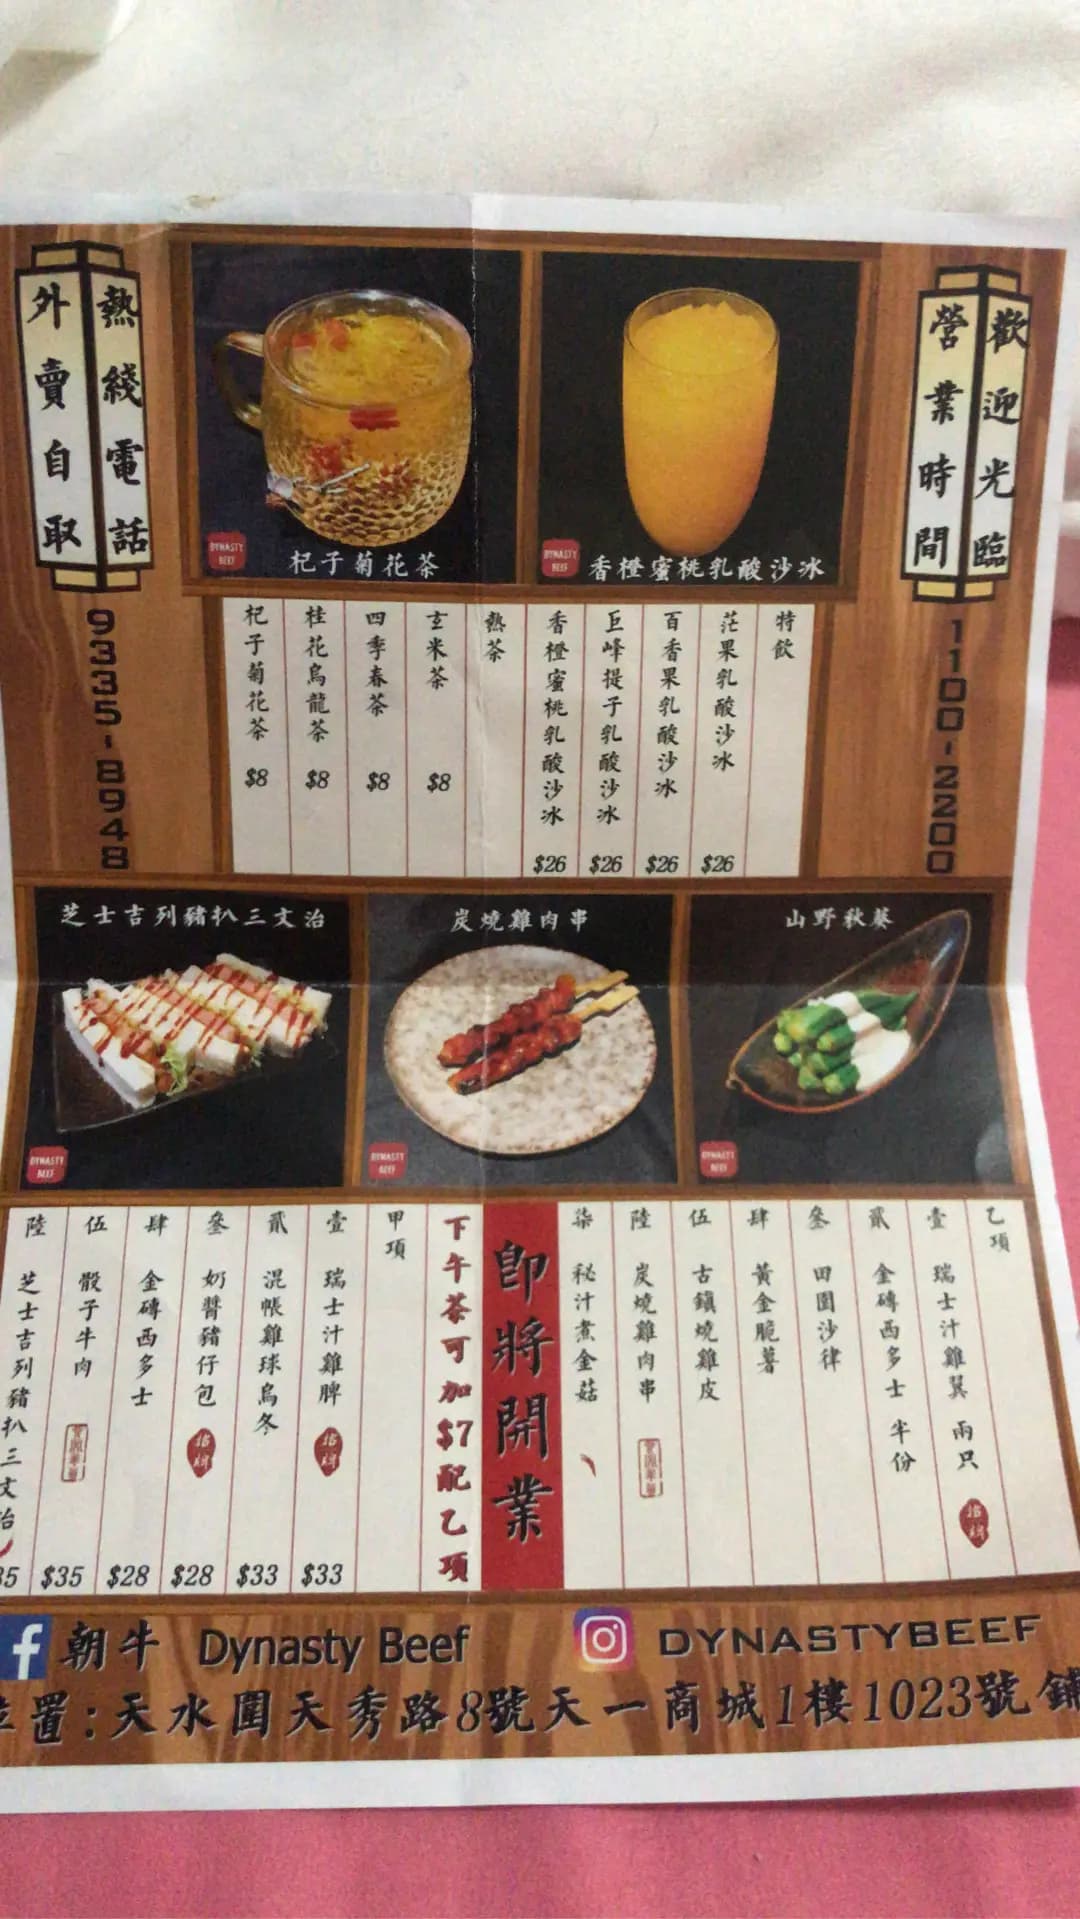 歡迎光臨
營業時間
1100-2200
熱綫電話
外賣自取
9335-8948
DYNASTY
BEEF
杞子菊花茶
DYNASTY
BEEF
香橙蜜桃乳酸沙冰
特飲
茫果乳酸沙冰 $26
百香果乳酸沙冰 $26
巨峰提子乳酸沙冰 $26
香橙蜜桃乳酸沙冰 $26
熱茶
玄米茶 $8
四季春茶 $8
桂花烏龍茶 $8
杞子菊花茶 $8
芝士吉列豬扒三文治
DYNASTY
BEEF
炭燒雞肉串
DYNASTY
BEEF
山野秋葵
DYNASTY
BEEF
乙項
壹 瑞士汁雞翼 兩只 招牌
貳 金磚西多士 半份
叁 田園沙律
肆 黃金脆薯
伍 古鎮燒雞皮
陸 炭燒雞肉串
柒 秘汁煮金菇
即將開業
下午茶可加$7配乙項
甲項
壹 瑞士汁雞脾 招牌 $33
貳 混帳雞球烏冬 $33
叁 奶醬豬仔包 招牌 $28
肆 金磚西多士 $28
伍 骰子牛肉 $35
陸 芝士吉列豬扒三文治
朝牛 Dynasty Beef
DYNASTYBEEF
置:天水圍天秀路8號天一商城1樓1023號鋪